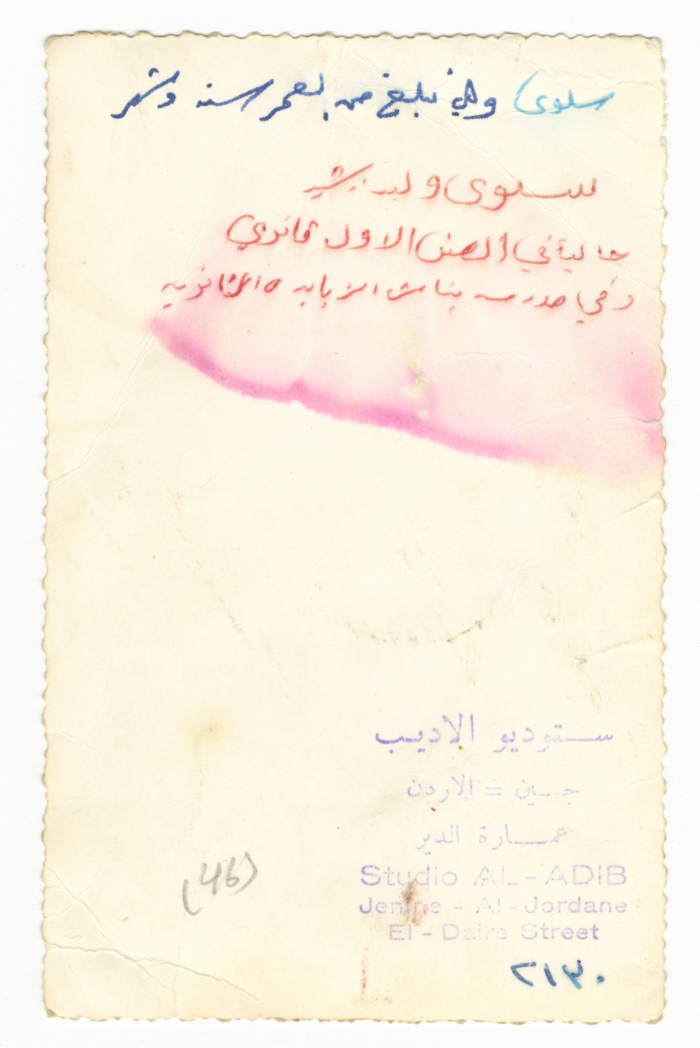 سلوى وهي تبلغ من العمر سنه وشهر
سلوى وليد رشيد
حالياً في الصف الاول ثانوي
وفي مدرسه بنات الزبابده الثانويه
ستوديو الاديب
جنين = الاردن
عمارة الدير
Studio AL-ADIB
Jenine - Al-Jordane
El-Daire Street
(46)
٢١٣٠